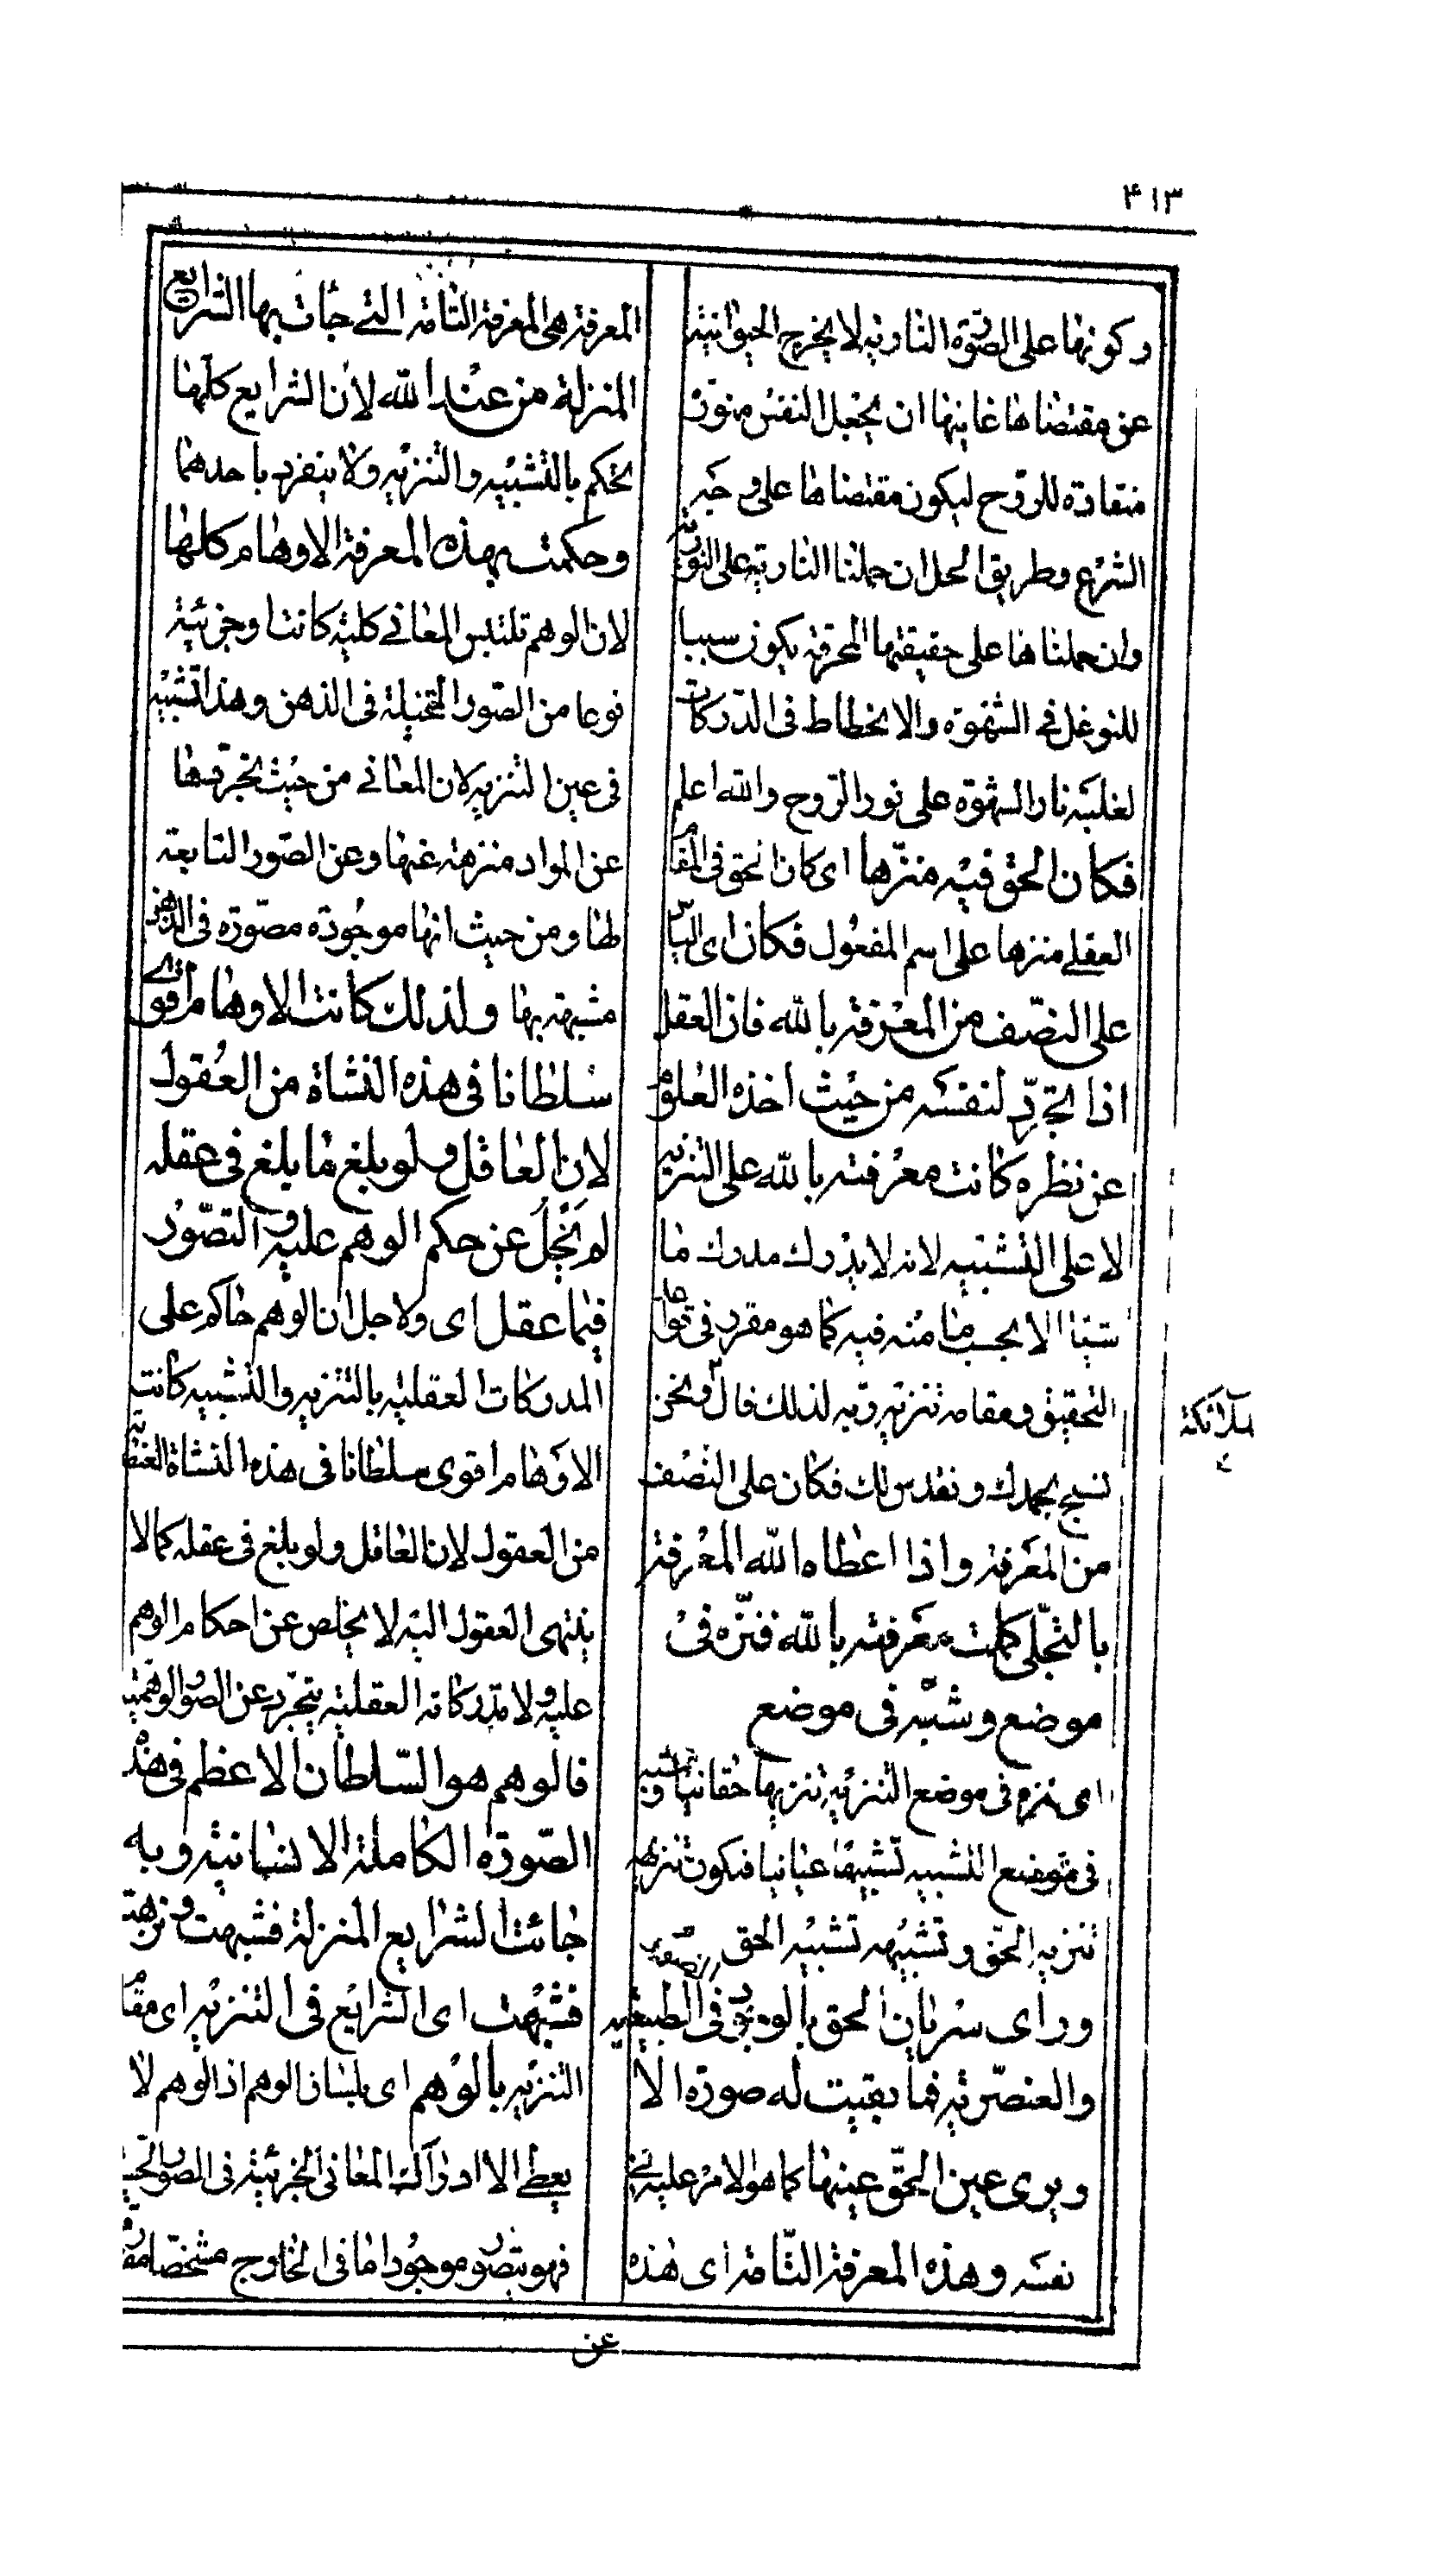 ۴۱۳
وكونها على الصورة النارية لا يخرج الحيوانية
عن مقتضاها غايتها ان يجعل النفس منورة
منقادة للروح ليكون مقتضاها على وجه
الشرع وطريق الحل ان حملنا النارية على النورية
وان حملناها على حقيقتها المحرقة يكون سببا
للتوغل في الشهوة والانحطاط في الدركات
لغلبة نار الشهوة على نور الروح والله اعلم
فكان الحق فيه منزها اى كان الحق فى المقام
العقلى منزها على اسم المفعول فكان اى الياس
على النصف من المعرفة بالله فان العقل
اذا تجرد لنفسه من حيث اخذه العلوم
عن نظره كانت معرفته بالله على التنزيه
لا على التشبيه لانه لا يدرك مدرك ما
شيئا الا بحسب ما منه فيه كما هو مقرر فى قواعد
التحقيق ومقامه تنزيه ربه لذلك قال ونحن
ملائكة
نسبح بحمدك ونقدس لك فكان على النصف
من المعرفة واذا اعطاه الله المعرفة
بالتجلى كملت معرفته بالله فنزه فى
موضع وشبه فى موضع
اى ينزه فى موضع التنزيه تنزيها حقانيا ويشبه
فى موضع التشبيه تشبيها عيانيا فيكون تنزيهه
تنزيه الحق وتشبيهه تشبيه الحق
وراى سريان الحق بالوجود فى الصور الطبيعية
والعنصرية فما بقيت له صورة الا
ويرى عين الحق عينها كما هو الامر عليه فى
نفسه وهذه المعرفة التامة اى هذه
المعرفة هى المعرفة التامة التى جاءت بها الشرايع
المنزلة من عند الله لان الشرايع كلها
تحكم بالتشبيه والتنزيه ولا ينفرد باحدهما
وحكمت بهذه المعرفة الاوهام كلها
لان الوهم تلبس المعانى كلية كانت او جزئية
نوعا من الصور المتخيلة فى الذهن وهذا تشبيه
فى عين التنزيه لان المعانى من حيث تجردها
عن المواد منزهة عنها وعن الصور التابعة
لها ومن حيث انها موجودة مصورة فى الذهن
مشبهة بها ولذلك كانت الاوهام اقوى
سلطانا فى هذه النشاة من العقول
لان العاقل ولو بلغ ما بلغ فى عقله
لم يخل عن حكم الوهم عليه والتصور
فيما عقل اى ولاجل ان الوهم حاكم على
المدركات العقلية بالتنزيه والتشبيه كانت
الاوهام اقوى سلطانا فى هذه النشاة العنصرية
من العقول لان العاقل ولو بلغ فى عقله كمالا
ينتهى العقول اليه لا يخلص عن احكام الوهم
عليه ولا مدركاته العقلية يتجرد عن الصور الوهمية
فالوهم هو السلطان الاعظم فى هذه
الصورة الكاملة الانسانية وبه
جائت الشرايع المنزلة فشبهت ونزهت
فشبهت اى الشرايع فى التنزيه اى مقام
التنزيه بالوهم اى بلسان الوهم اذ الوهم لا
يعطى الا ادراك المعانى الجزئية فى الصور الحسية
فهو يتصور موجودا ما فى الخارج مشخصا
عن